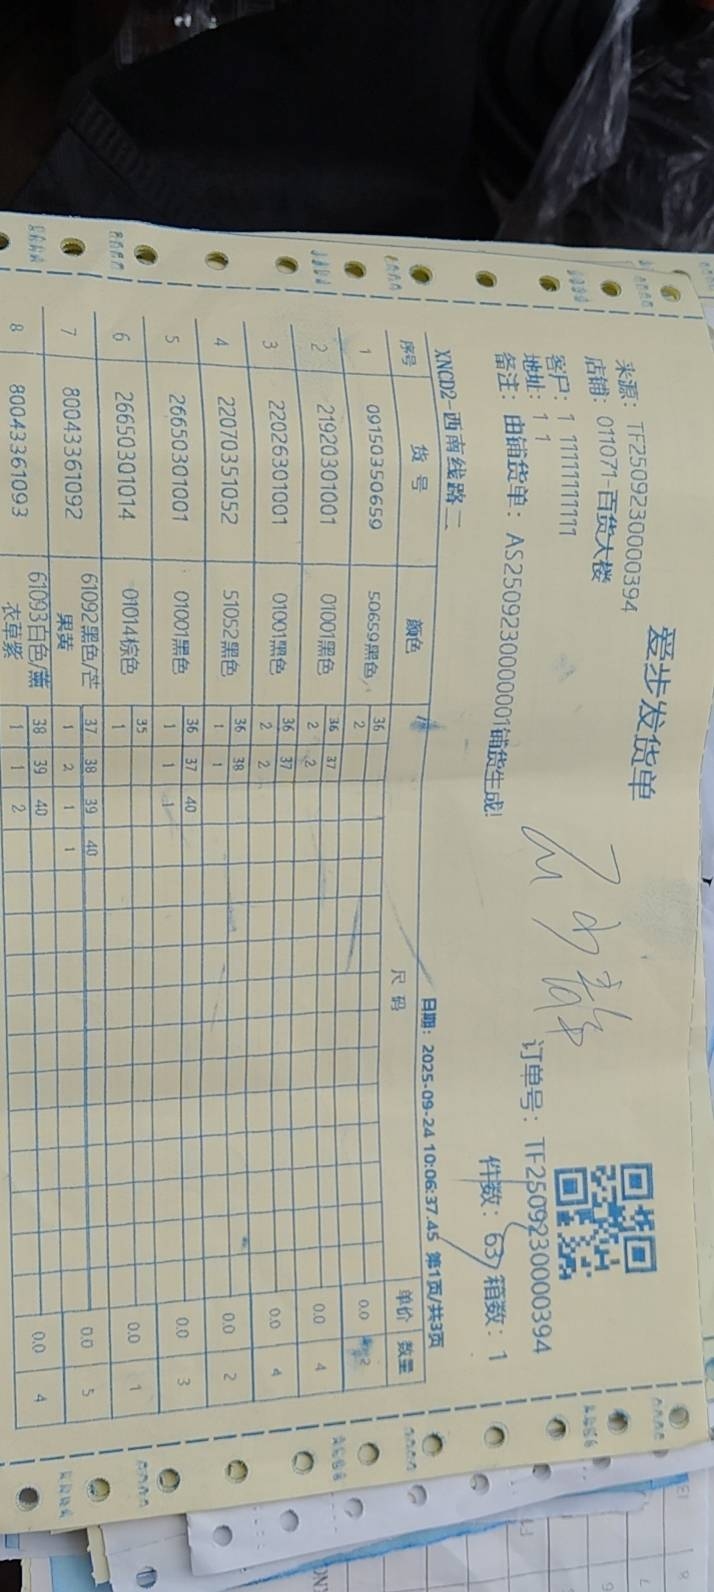 爱步发货单
来源：TF2509230000394
店铺：011071-百货大楼
客户：1 11111111111
地址：1 1
订单号：TF2509230000394
备注：由铺货单：AS2509230000001铺货生成!
件数：63 箱数：1
XNCD2-西南线路二
日期：2025-09-24 10:06:37.45 第1页/共3页
序号 货号 颜色 尺码 单价 数量
1 09150350659 50659黑色 36 0.0 2
2
2 21920301001 01001黑色 36 37 0.0 4
2 2
3 22026301001 01001黑色 36 37 0.0 4
2 2
4 22070351052 51052黑色 36 38 0.0 2
1 1
5 26650301001 01001黑色 36 37 40 0.0 3
1 1 1
6 26650301014 01014棕色 35 0.0 1
1
7 80043361092 61092黑色/芒果黄 37 38 39 40 0.0 5
1 2 1 1
8 80043361093 61093白色/薰衣草紫 38 39 40 0.0 4
1 1 2